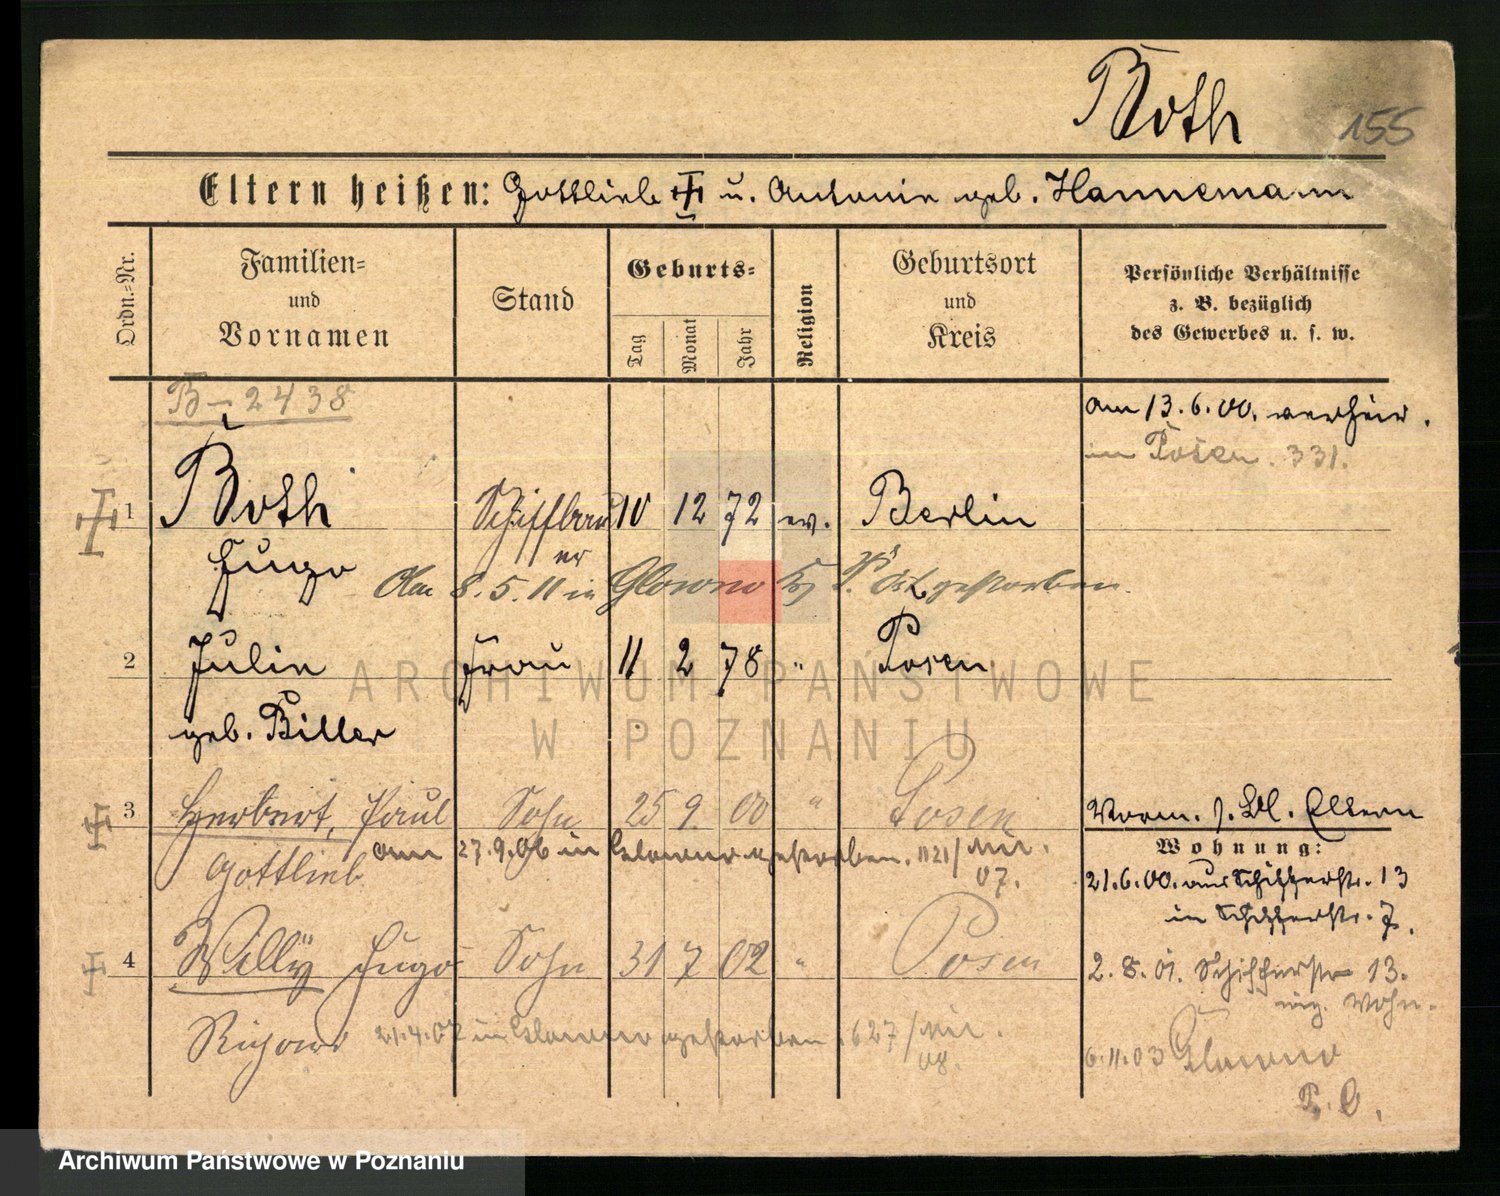 Both 155
Eltern heißen: Gottlieb u. Antonie geb. Hannemann
Ordn.=Nr.
Familien= und Vornamen
Stand
Geburts=
Tag
Monat
Jahr
Religion
Geburtsort und Kreis
Persönliche Verhältnisse
z. B. bezüglich
des Gewerbes u. s. w.
B-2438
am 13.6.00. verheir.
in Posen. 331.
1 Both Schiffbau 10 12 72 ev. Berlin
er
Hugo
Am 8.5.11 in Glowno Kr P. Ost gestorben.
2 Julie Frau 11 2 78 " Posen
geb. Biller
ARCHIWUM PAŃSTWOWE
W POZNANIU
3 Herbert, Paul Sohn 25 9. 00 " Posen
Gottlieb
am 27.9.06 in Glowno gestorben. 1121/
07.
Vorm. s. Bl. Eltern
Wohnung:
21.6.00. aus Schifferstr. 13
in Schifferstr. 7.
4 Willy Hugo Sohn 31 7 02 " Posen
Richard
21.4.07 in Glowno gestorben. 627/
08.
2.8.01. Schifferstr 13.
eig. Wohn.
6.11.03 Glowno
P. O.
Archiwum Państwowe w Poznaniu